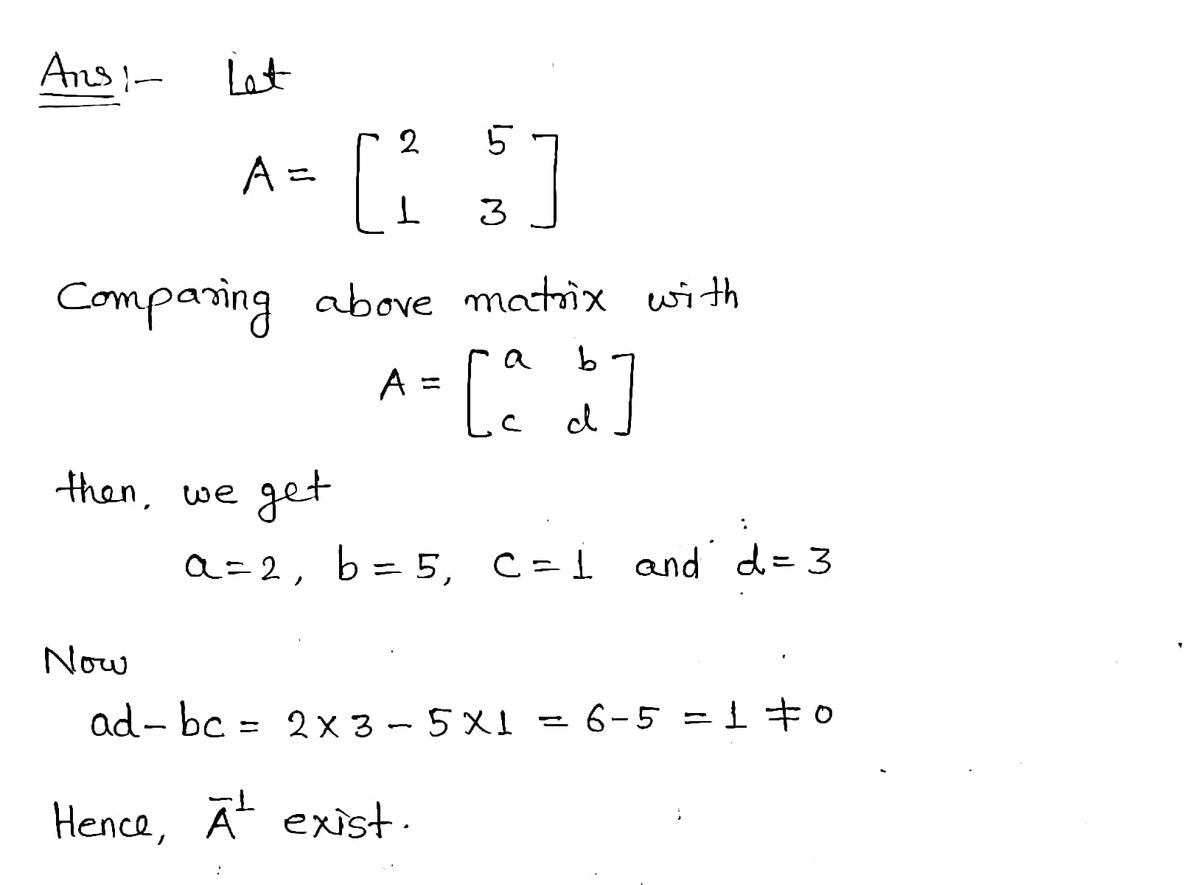 Ans:- Let
A = [ 2 5
1 3 ]
Comparing above matrix with
A = [ a b
c d ]
then, we get
a=2, b=5, c=1 and d=3
Now
ad-bc = 2×3-5×1 = 6-5 = 1 ≠ 0
Hence, A⁻¹ exist.